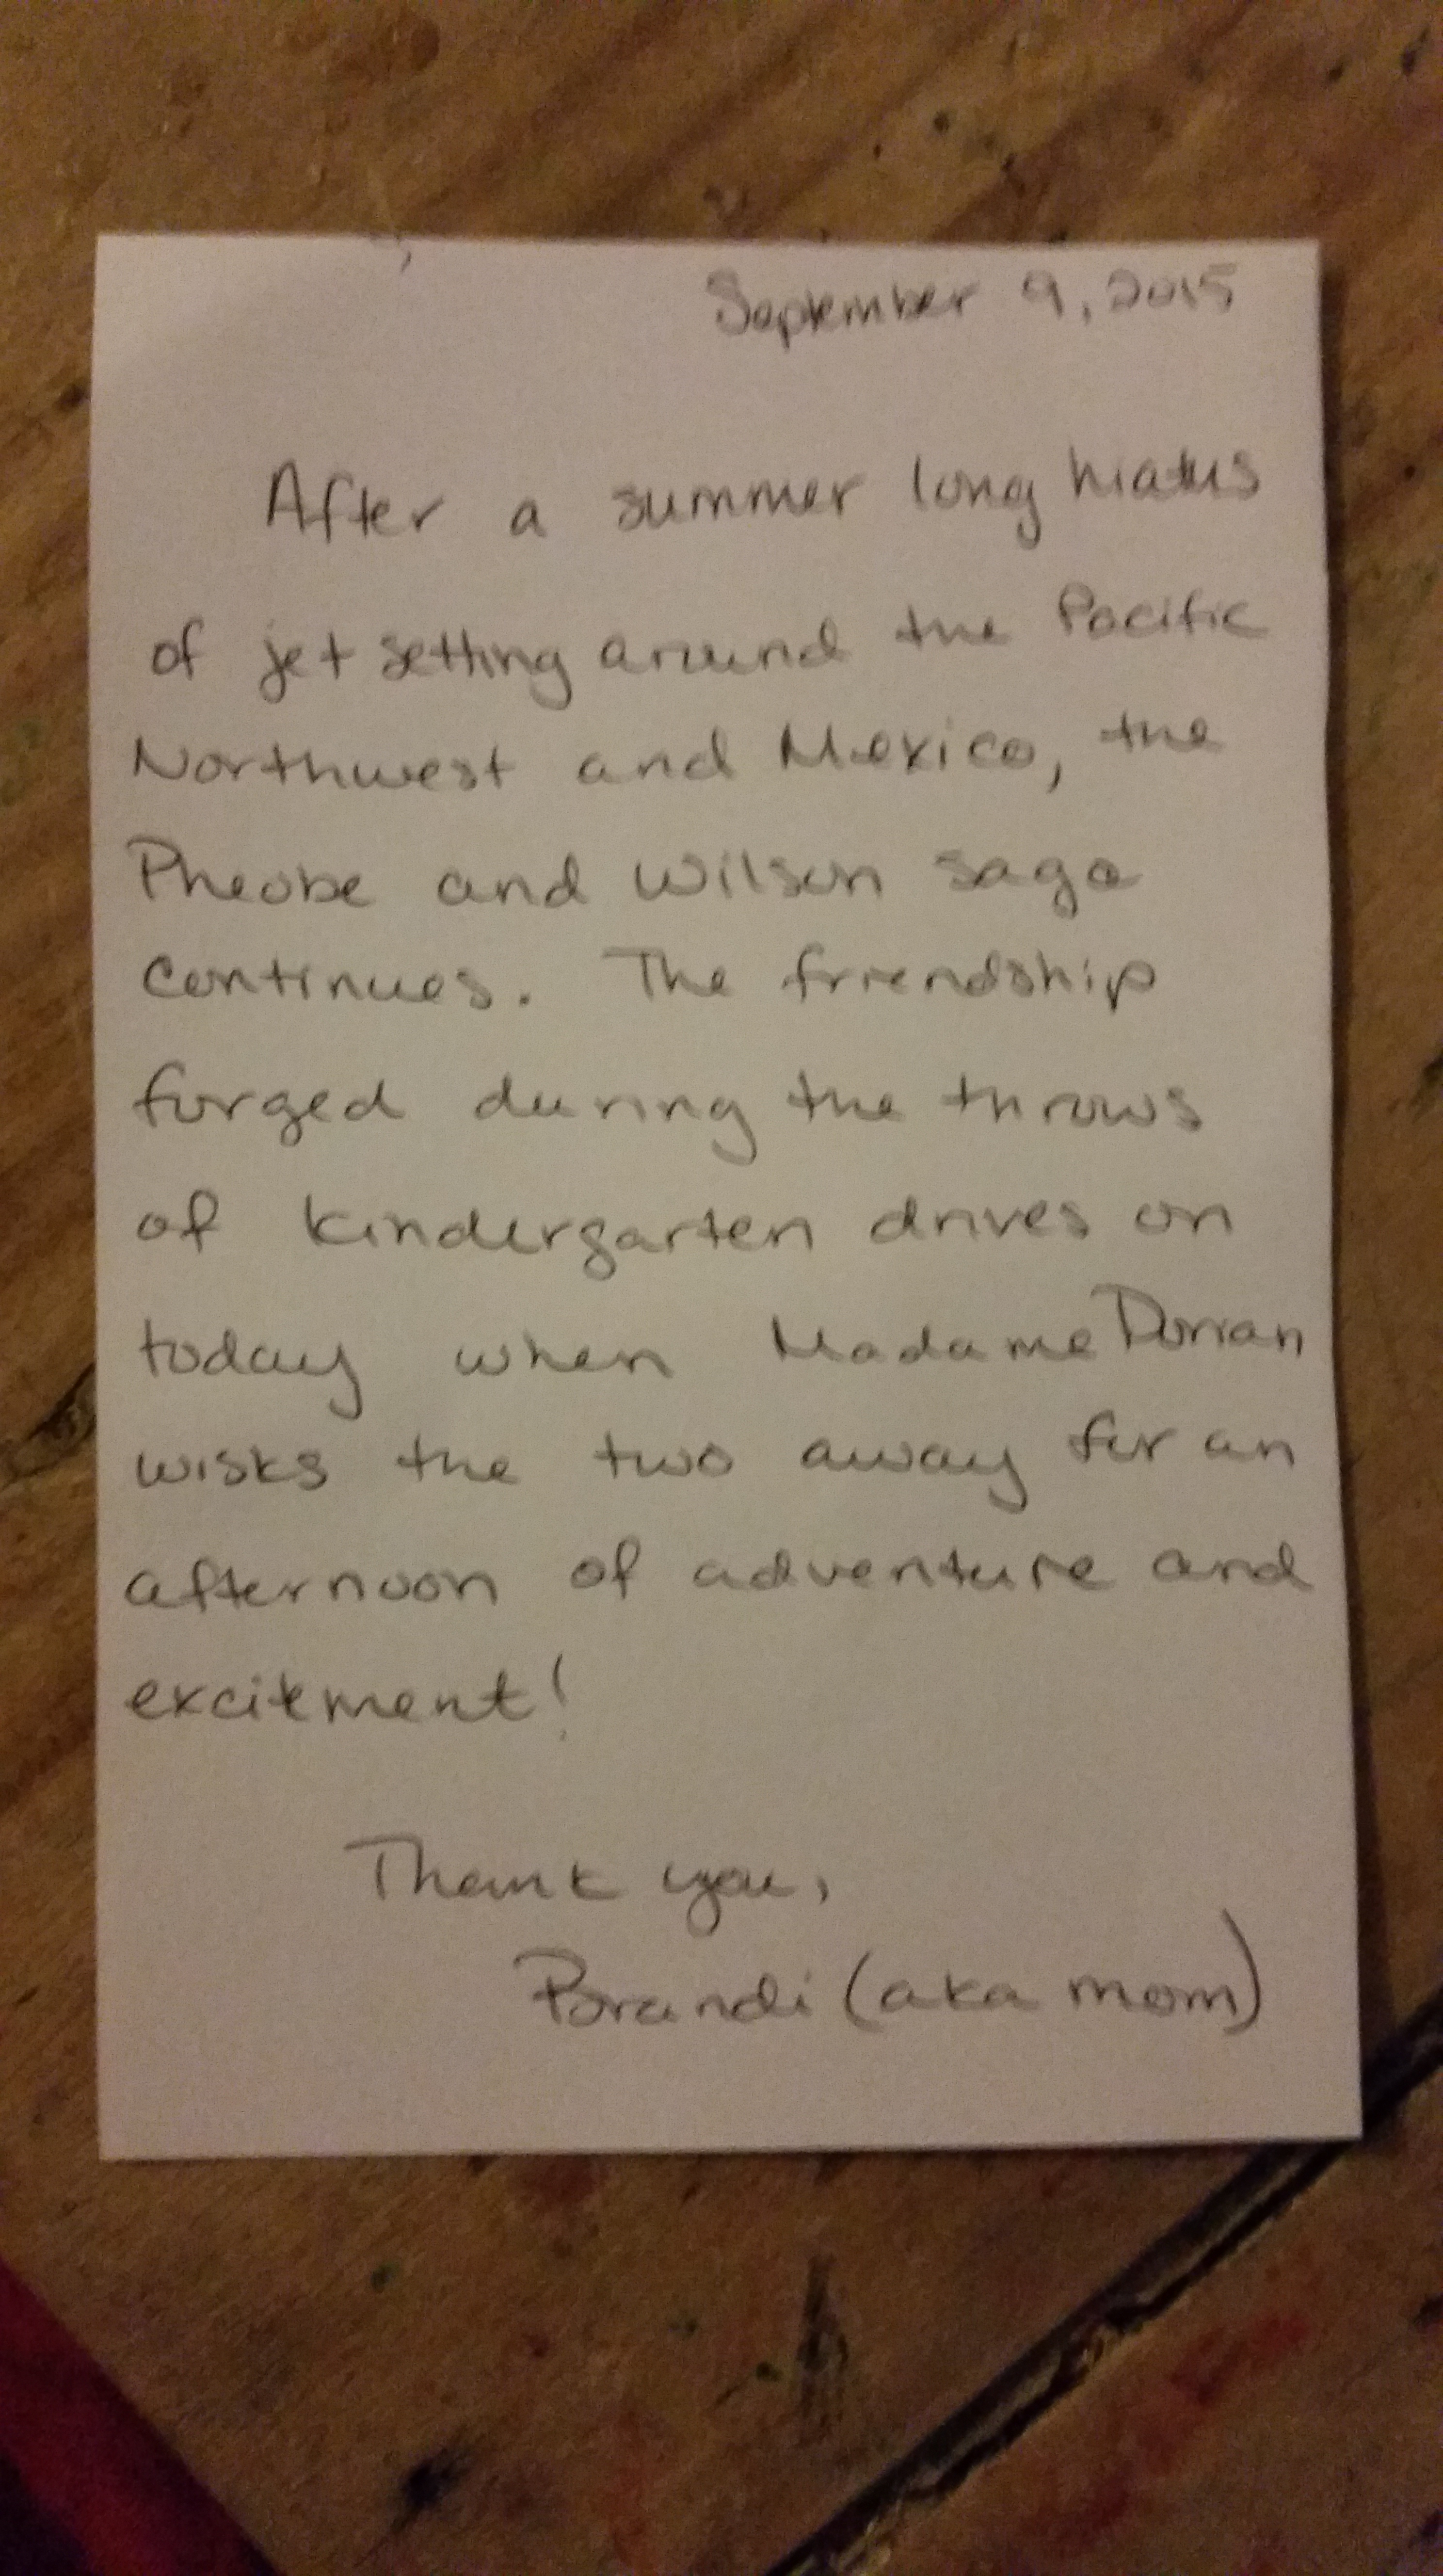 September 9, 2015
After a summer long hiatus
of jet setting around the Pacific
Northwest and Mexico, the
Pheobe and Wilson saga
continues. The friendship
forged during the throws
of kindergarten drives on
today when Madame Dorian
wisks the two away for an
afternoon of adventure and
excitement!
Thank you,
Brandi (aka mom)